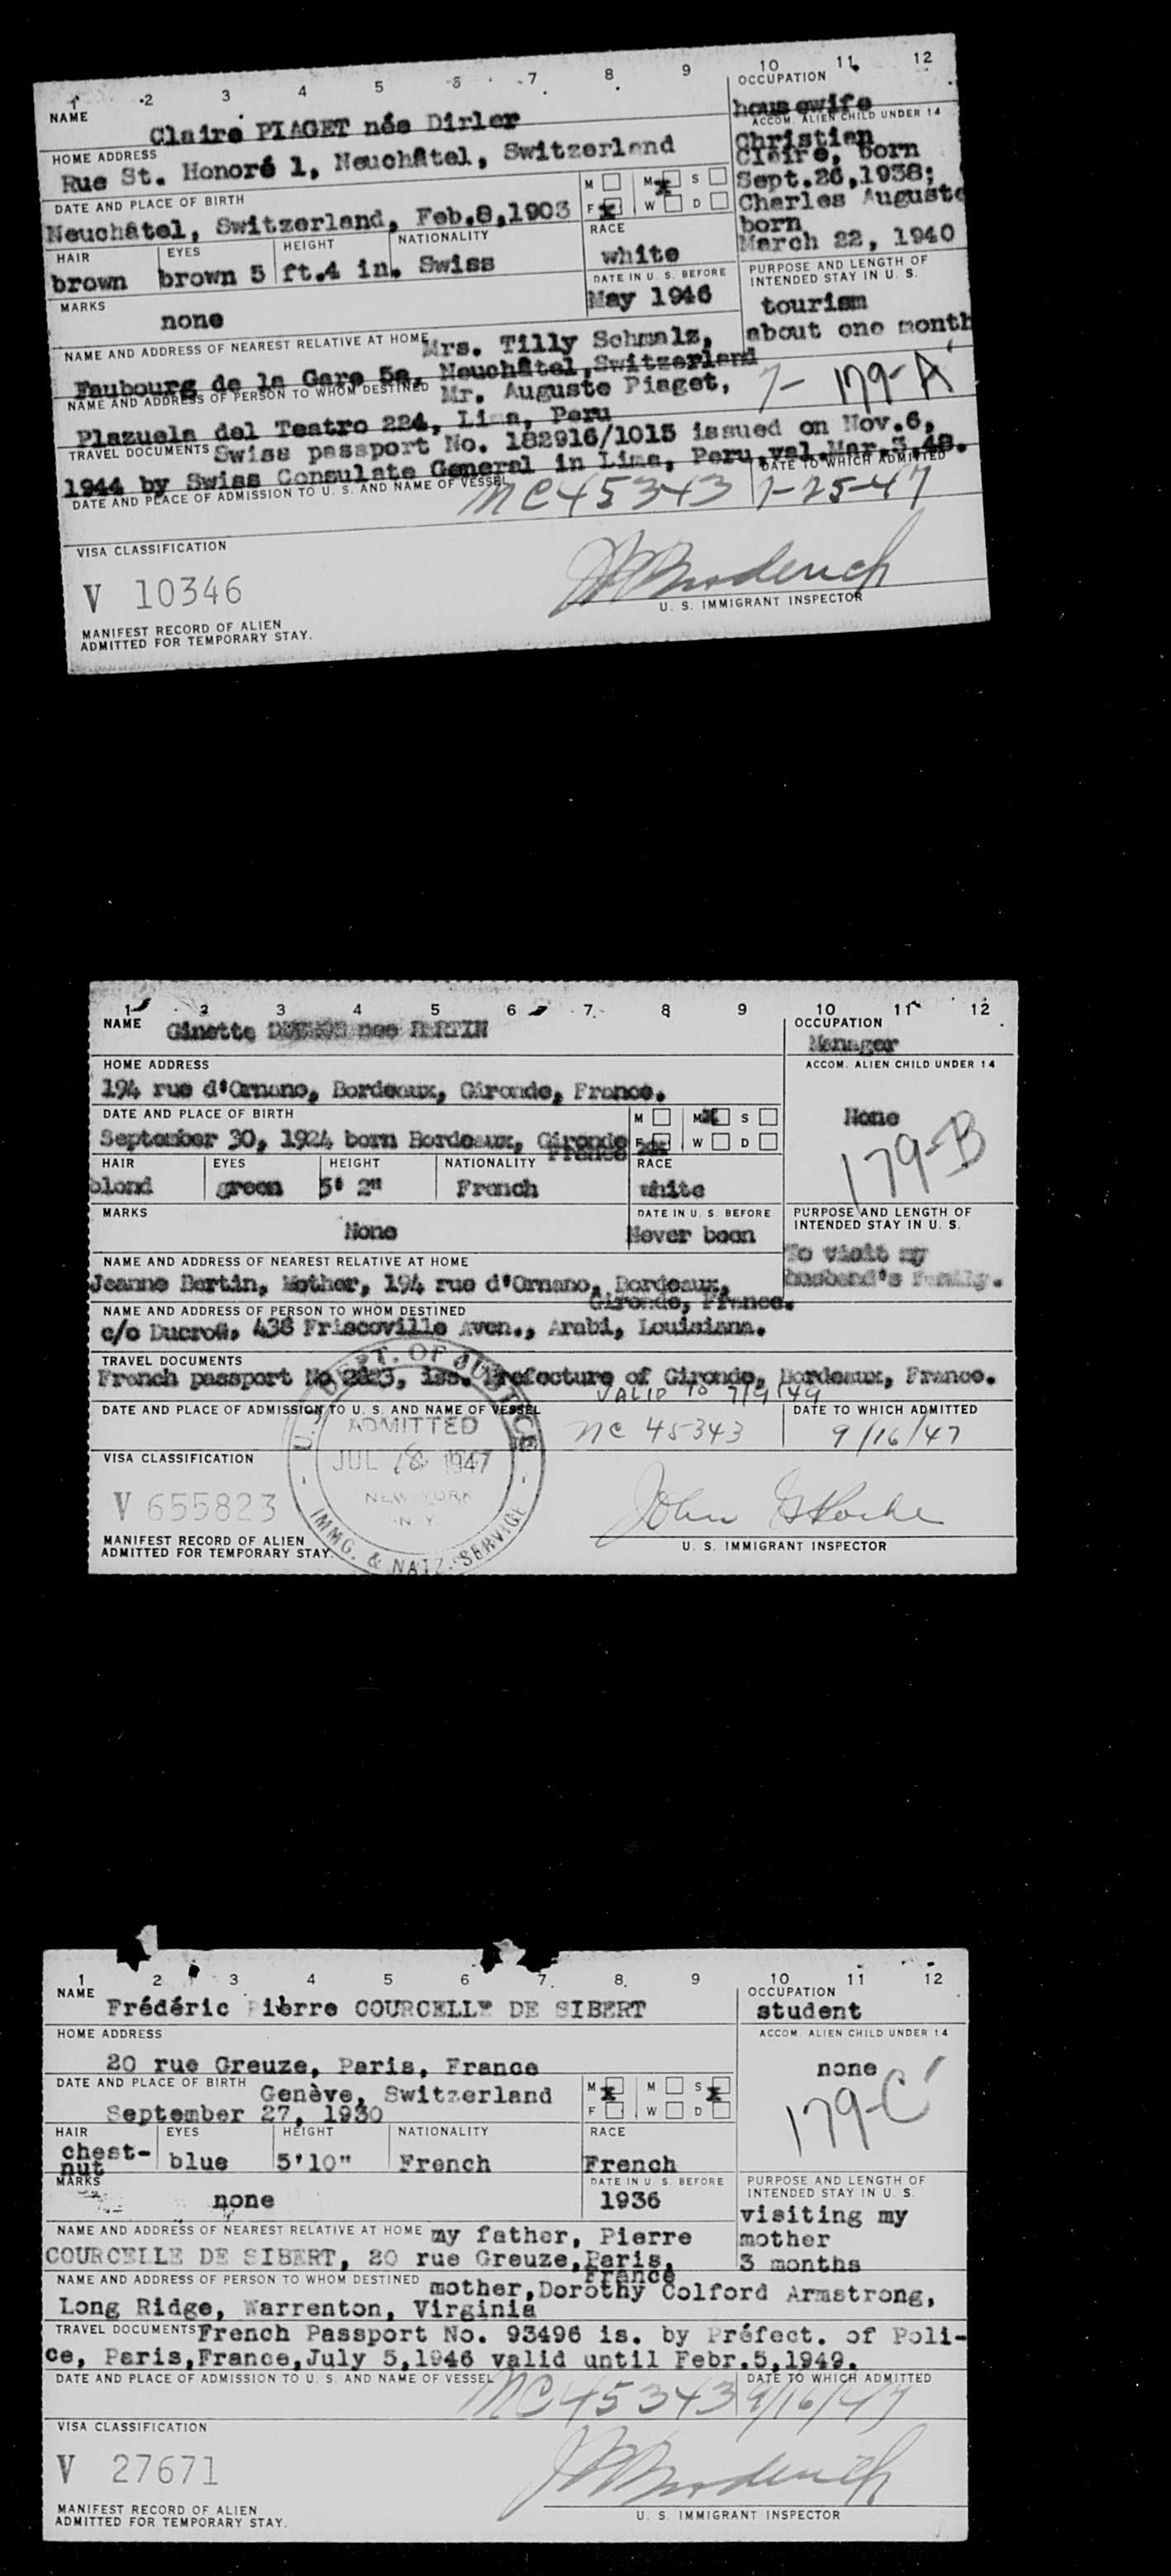 1 2 3 4 5 6 7 8 9 10 11 12
NAME
Claire PIAGET née Dirler
OCCUPATION
housewife
HOME ADDRESS
Rue St. Honoré 1, Neuchâtel, Switzerland
ACCOM. ALIEN CHILD UNDER 14
Christian
Claire, born
Sept.26,1938;
Charles Auguste
born
March 22, 1940
DATE AND PLACE OF BIRTH
Neuchâtel, Switzerland, Feb.8,1903
M M x S
F x W D
HAIR EYES HEIGHT NATIONALITY RACE
brown brown 5 ft.4 in. Swiss white
MARKS
none
DATE IN U. S. BEFORE
May 1946
PURPOSE AND LENGTH OF
INTENDED STAY IN U. S.
tourism
about one month
NAME AND ADDRESS OF NEAREST RELATIVE AT HOME Mrs. Tilly Schmalz,
Faubourg de la Gare 5a, Neuchâtel,Switzerland
NAME AND ADDRESS OF PERSON TO WHOM DESTINED Mr. Auguste Piaget,
7- 179-A
Plazuela del Teatro 224, Lima, Peru
TRAVEL DOCUMENTS Swiss passport No. 182916/1015 issued on Nov.6,
1944 by Swiss Consulate General in Lima, Peru,val.Mar.3,48.
DATE AND PLACE OF ADMISSION TO U. S. AND NAME OF VESSEL
DATE TO WHICH ADMITTED
NC 45343 7-25-47
VISA CLASSIFICATION
V 10346
U. S. IMMIGRANT INSPECTOR
MANIFEST RECORD OF ALIEN
ADMITTED FOR TEMPORARY STAY.
1 2 3 4 5 6 7 8 9 10 11 12
NAME
Ginette nee BERTIN
OCCUPATION
Manager
HOME ADDRESS
194 rue d'Ornano, Bordeaux, Gironde, France.
ACCOM. ALIEN CHILD UNDER 14
None
179-B
DATE AND PLACE OF BIRTH
September 30, 1924 born Bordeaux, Gironde
France
M M x S
F xx W D
HAIR EYES HEIGHT NATIONALITY RACE
blond green 5' 2" French white
MARKS
None
DATE IN U. S. BEFORE
Never been
PURPOSE AND LENGTH OF
INTENDED STAY IN U. S.
To visit my
husband's family.
NAME AND ADDRESS OF NEAREST RELATIVE AT HOME
Jeanne Bertin, Mother, 194 rue d'Ornano, Bordeaux,
Gironde, France.
NAME AND ADDRESS OF PERSON TO WHOM DESTINED
c/o Ducros, 438 Friscoville Aven., Arabi, Louisiana.
TRAVEL DOCUMENTS
French passport No 2823, iss. Prefecture of Gironde, Bordeaux, France.
VALID TO 7/9/49
DATE AND PLACE OF ADMISSION TO U. S. AND NAME OF VESSEL
DATE TO WHICH ADMITTED
NC 45343 9/16/47
U. S. DEPT. OF JUSTICE
ADMITTED
JUL 18 1947
NEW YORK
N. Y.
IMMG. & NATZ. SERVICE
VISA CLASSIFICATION
V 655823
U. S. IMMIGRANT INSPECTOR
MANIFEST RECORD OF ALIEN
ADMITTED FOR TEMPORARY STAY.
1 2 3 4 5 6 7 8 9 10 11 12
NAME
Frédéric Pierre COURCELLE DE SIBERT
OCCUPATION
student
HOME ADDRESS
20 rue Greuze, Paris, France
ACCOM. ALIEN CHILD UNDER 14
none
179-C
DATE AND PLACE OF BIRTH Genève, Switzerland
September 27, 1930
M x M S x
F W D
HAIR EYES HEIGHT NATIONALITY RACE
chest-
nut blue 5'10" French French
MARKS
none
DATE IN U. S. BEFORE
1936
PURPOSE AND LENGTH OF
INTENDED STAY IN U. S.
visiting my
mother
3 months
NAME AND ADDRESS OF NEAREST RELATIVE AT HOME my father, Pierre
COURCELLE DE SIBERT, 20 rue Greuze,Paris,
France
NAME AND ADDRESS OF PERSON TO WHOM DESTINED mother,Dorothy Colford Armstrong,
Long Ridge, Warrenton, Virginia
TRAVEL DOCUMENTS French Passport No. 93496 is. by Préfect. of Poli-
ce, Paris,France,July 5,1946 valid until Febr.5,1949.
DATE AND PLACE OF ADMISSION TO U. S. AND NAME OF VESSEL
DATE TO WHICH ADMITTED
NC 45343 9/16/47
VISA CLASSIFICATION
V 27671
U. S. IMMIGRANT INSPECTOR
MANIFEST RECORD OF ALIEN
ADMITTED FOR TEMPORARY STAY.